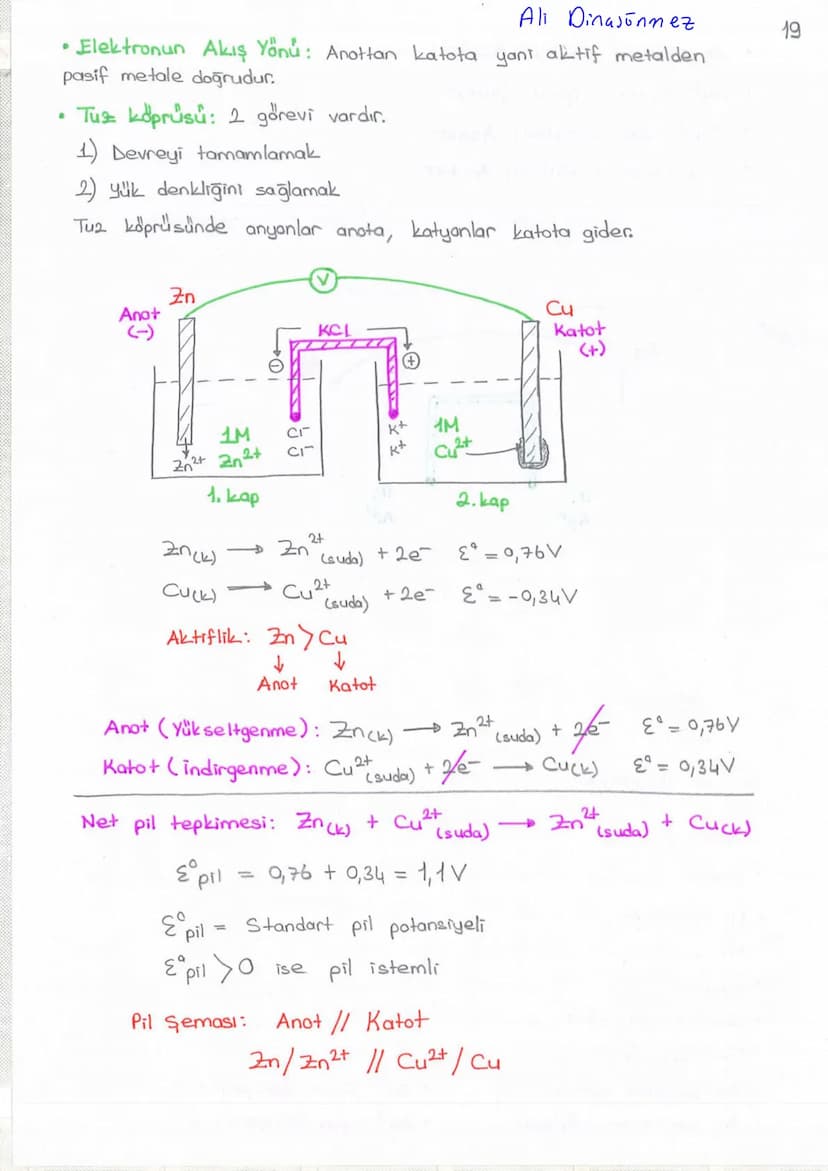 Ali Dinasönmez
19
• Elektronun Akış Yönü: Anottan katota yani aktif metalden
pasif metale doğrudur.
• Tuz köprüsü: 2 görevi vardır.
1) Devreyi tamamlamak
2) Yük denkliğini sağlamak
Tuz köprüsünde anyonlar anota, katyonlar katota gider.
V
Zn
Anot
(-)
KCl
Cu
Katot
(+)
⊖
⊕
Zn²⁺
1M
Zn²⁺
Cl⁻
Cl⁻
K⁺
K⁺
1M
Cu²⁺
1. kap
2. kap
Zn(k) → Zn²⁺(suda) + 2e⁻ Ɛ° = 0,76V
Cu(k) → Cu²⁺(suda) + 2e⁻ Ɛ° = -0,34V
Aktiflik: Zn > Cu
↓ ↓
Anot Katot
Anot (Yükseltgenme): Zn(k) → Zn²⁺(suda) + 2e⁻ Ɛ° = 0,76V
Katot (indirgenme): Cu²⁺(suda) + 2e⁻ → Cu(k) Ɛ° = 0,34V
Net pil tepkimesi: Zn(k) + Cu²⁺(suda) → Zn²⁺(suda) + Cu(k)
Ɛ°pil = 0,76 + 0,34 = 1,1V
Ɛ°pil = Standart pil potansiyeli
Ɛ°pil > 0 ise pil istemli
Pil Şeması: Anot // Katot
Zn/Zn²⁺ // Cu²⁺/Cu